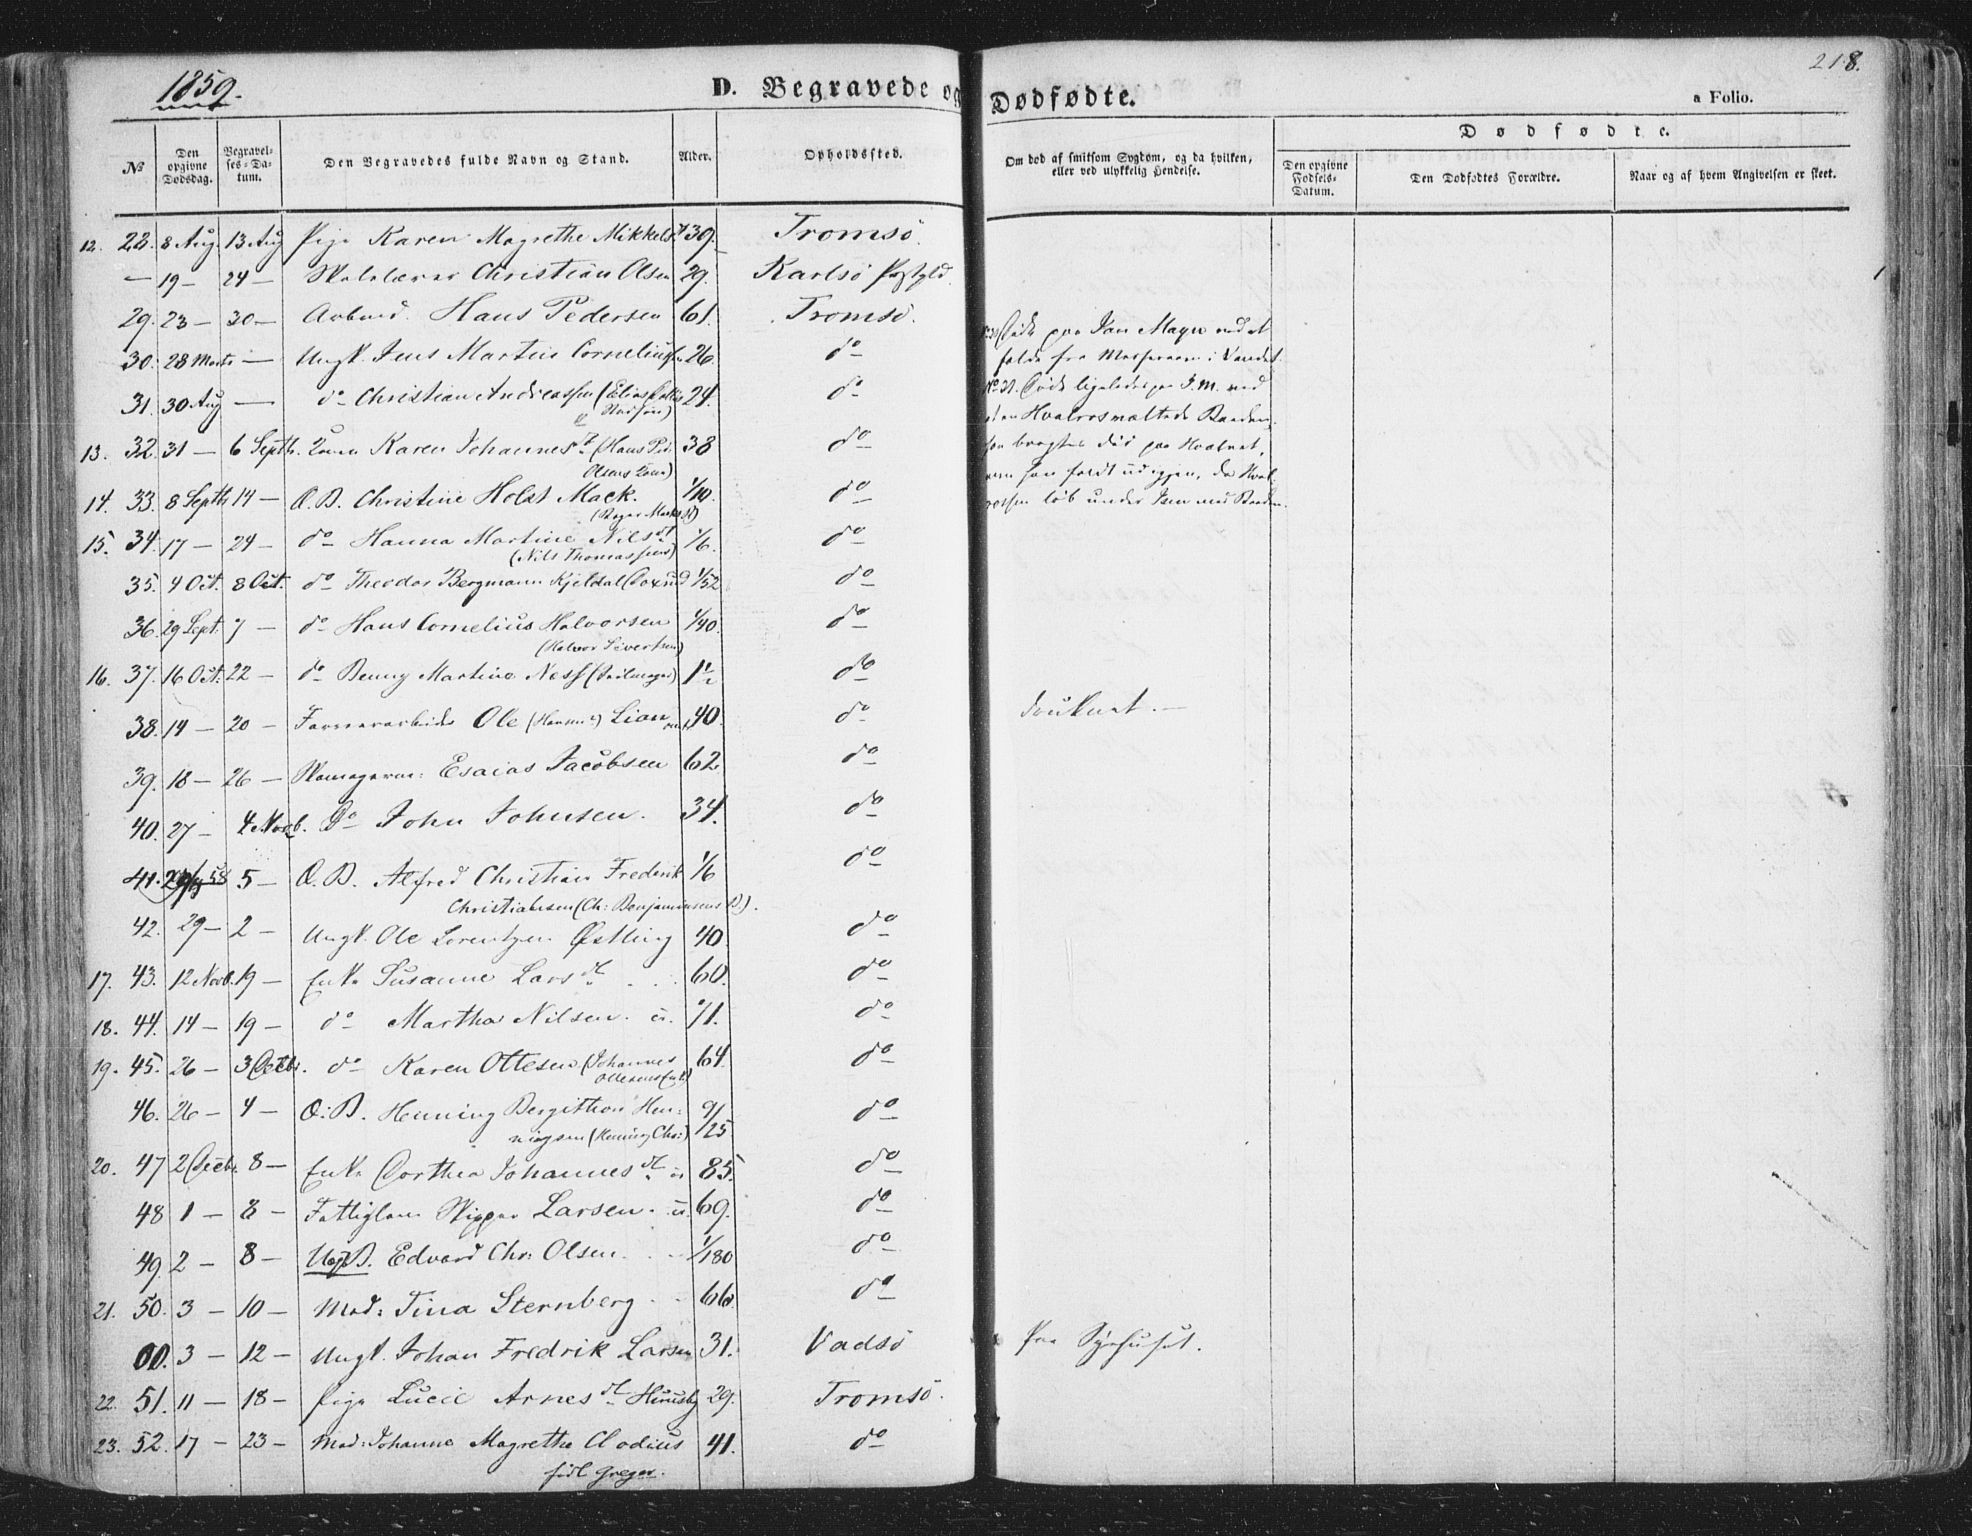 1859.
218.
D. Begravede og Dødfødte.
a Folio.
Dødfødte.
№
Den opgivne Dødsdag.
Begravelses-Datum.
Den Begravedes fulde Navn og Stand.
Alder.
Opholdssted.
Om død af smitsom Sygdom, og da hvilken, eller ved ulykkelig Hendelse.
Den opgivne Fødsels-Datum.
Den Dødfødtes Forældre.
Naar og af hvem Angivelsen er skeet.
12. 28. 8 Aug. 13 Aug Pige Karen Magrethe Mikkelsdt 39. Tromsö.
— 19 — 24 — Skolelærer Christian Olsen 29. Karlsö Præstgld.
29. 23 — 30 — Arbmd. Hans Pedersen 61. Tromsö.
30. 28 Marts — Ungk. Jens Martin Corneliussen 26. do
31. 30 Aug — do Christian Andreassen (Elias 24. do
13. 32. 31 — 6 Septb. Kone Karen Johannesdt (Hans Ped. 38 do
Olsens Kone)
14. 33. 8 Septb 14 — D. B. Christine Holst Mack. 1/10. do
15. 34. 17 — 24 — do Hanna Martine Nilsdt 1/6. do
(Nils Thomassens)
35. 4 Oct. 8 Oct. do Theodor Bergmann Kjeldal 1/52 do
36. 29 Sept. 7 — do Hans Cornelius Halvorsen 1/40. do
(Halvor Sivertsen)
16. 37. 16 Oct. 22 — do Benny Martine Ness 1½ do
38. 14 — 20 — Ole Lian 40. do druknet. —
39. 18 — 26 — Skomagerm: Esaias Jacobsen 62. do
40. 27 — 4 Novb. Do John Johnsen. 34. do
41. 5 — D. B. Alfred Christian Frederik 1/6 do
Christiansen (Ch: Benjaminsens B.).
42. 29 — 2 — Ungk. Ole Lorentzen Østling 40. do
17. 43. 12 Novb. 19 — Enke Susanne Larsdt 60. do
18. 44. 14 — 19 — do Martha Nilsen. 71. do
19. 45. 26 — 3 Decbr. do Karen Ottesen (Johannes 64. do
Ottesens Enke)
46. 26 — 4 — D: B. Henning Bergithon Hen: 9/25 do
ningsen (Henning Chr:)
20. 47 2 Decbr. 8 — Enke Dorthea Johannesdt 85. do
48 1 — 8 — Fattiglem Larsen. 69. do
49. 2 — 8 — Uægt B. Edvard Chr: Olsen. 1/180 do
21. 50. 3 — 10 — Mad: Tina Sternberg 66. do
00. 3 — 12 — Ungk. Johan Fredrik Larsen 31. Vadsö Paa Sygehuset.
22. 51. 11 — 18 — Pige Lucie Arnesdt 29. Tromsö.
23. 52. 17 — 23 — Mad: Johanne Magrethe Clodius 41. do
född Greger.
Døde paa Jan Mayn ved at
falde fra i Vandet.
No 31. Døde ligeledes paa J. M. ved
at en Hvalros væltede Baaden;
han bragtes død paa Hvalrosset,
men han faldt ud igjen, da Hval
rossen löb under Isen med Baaden.